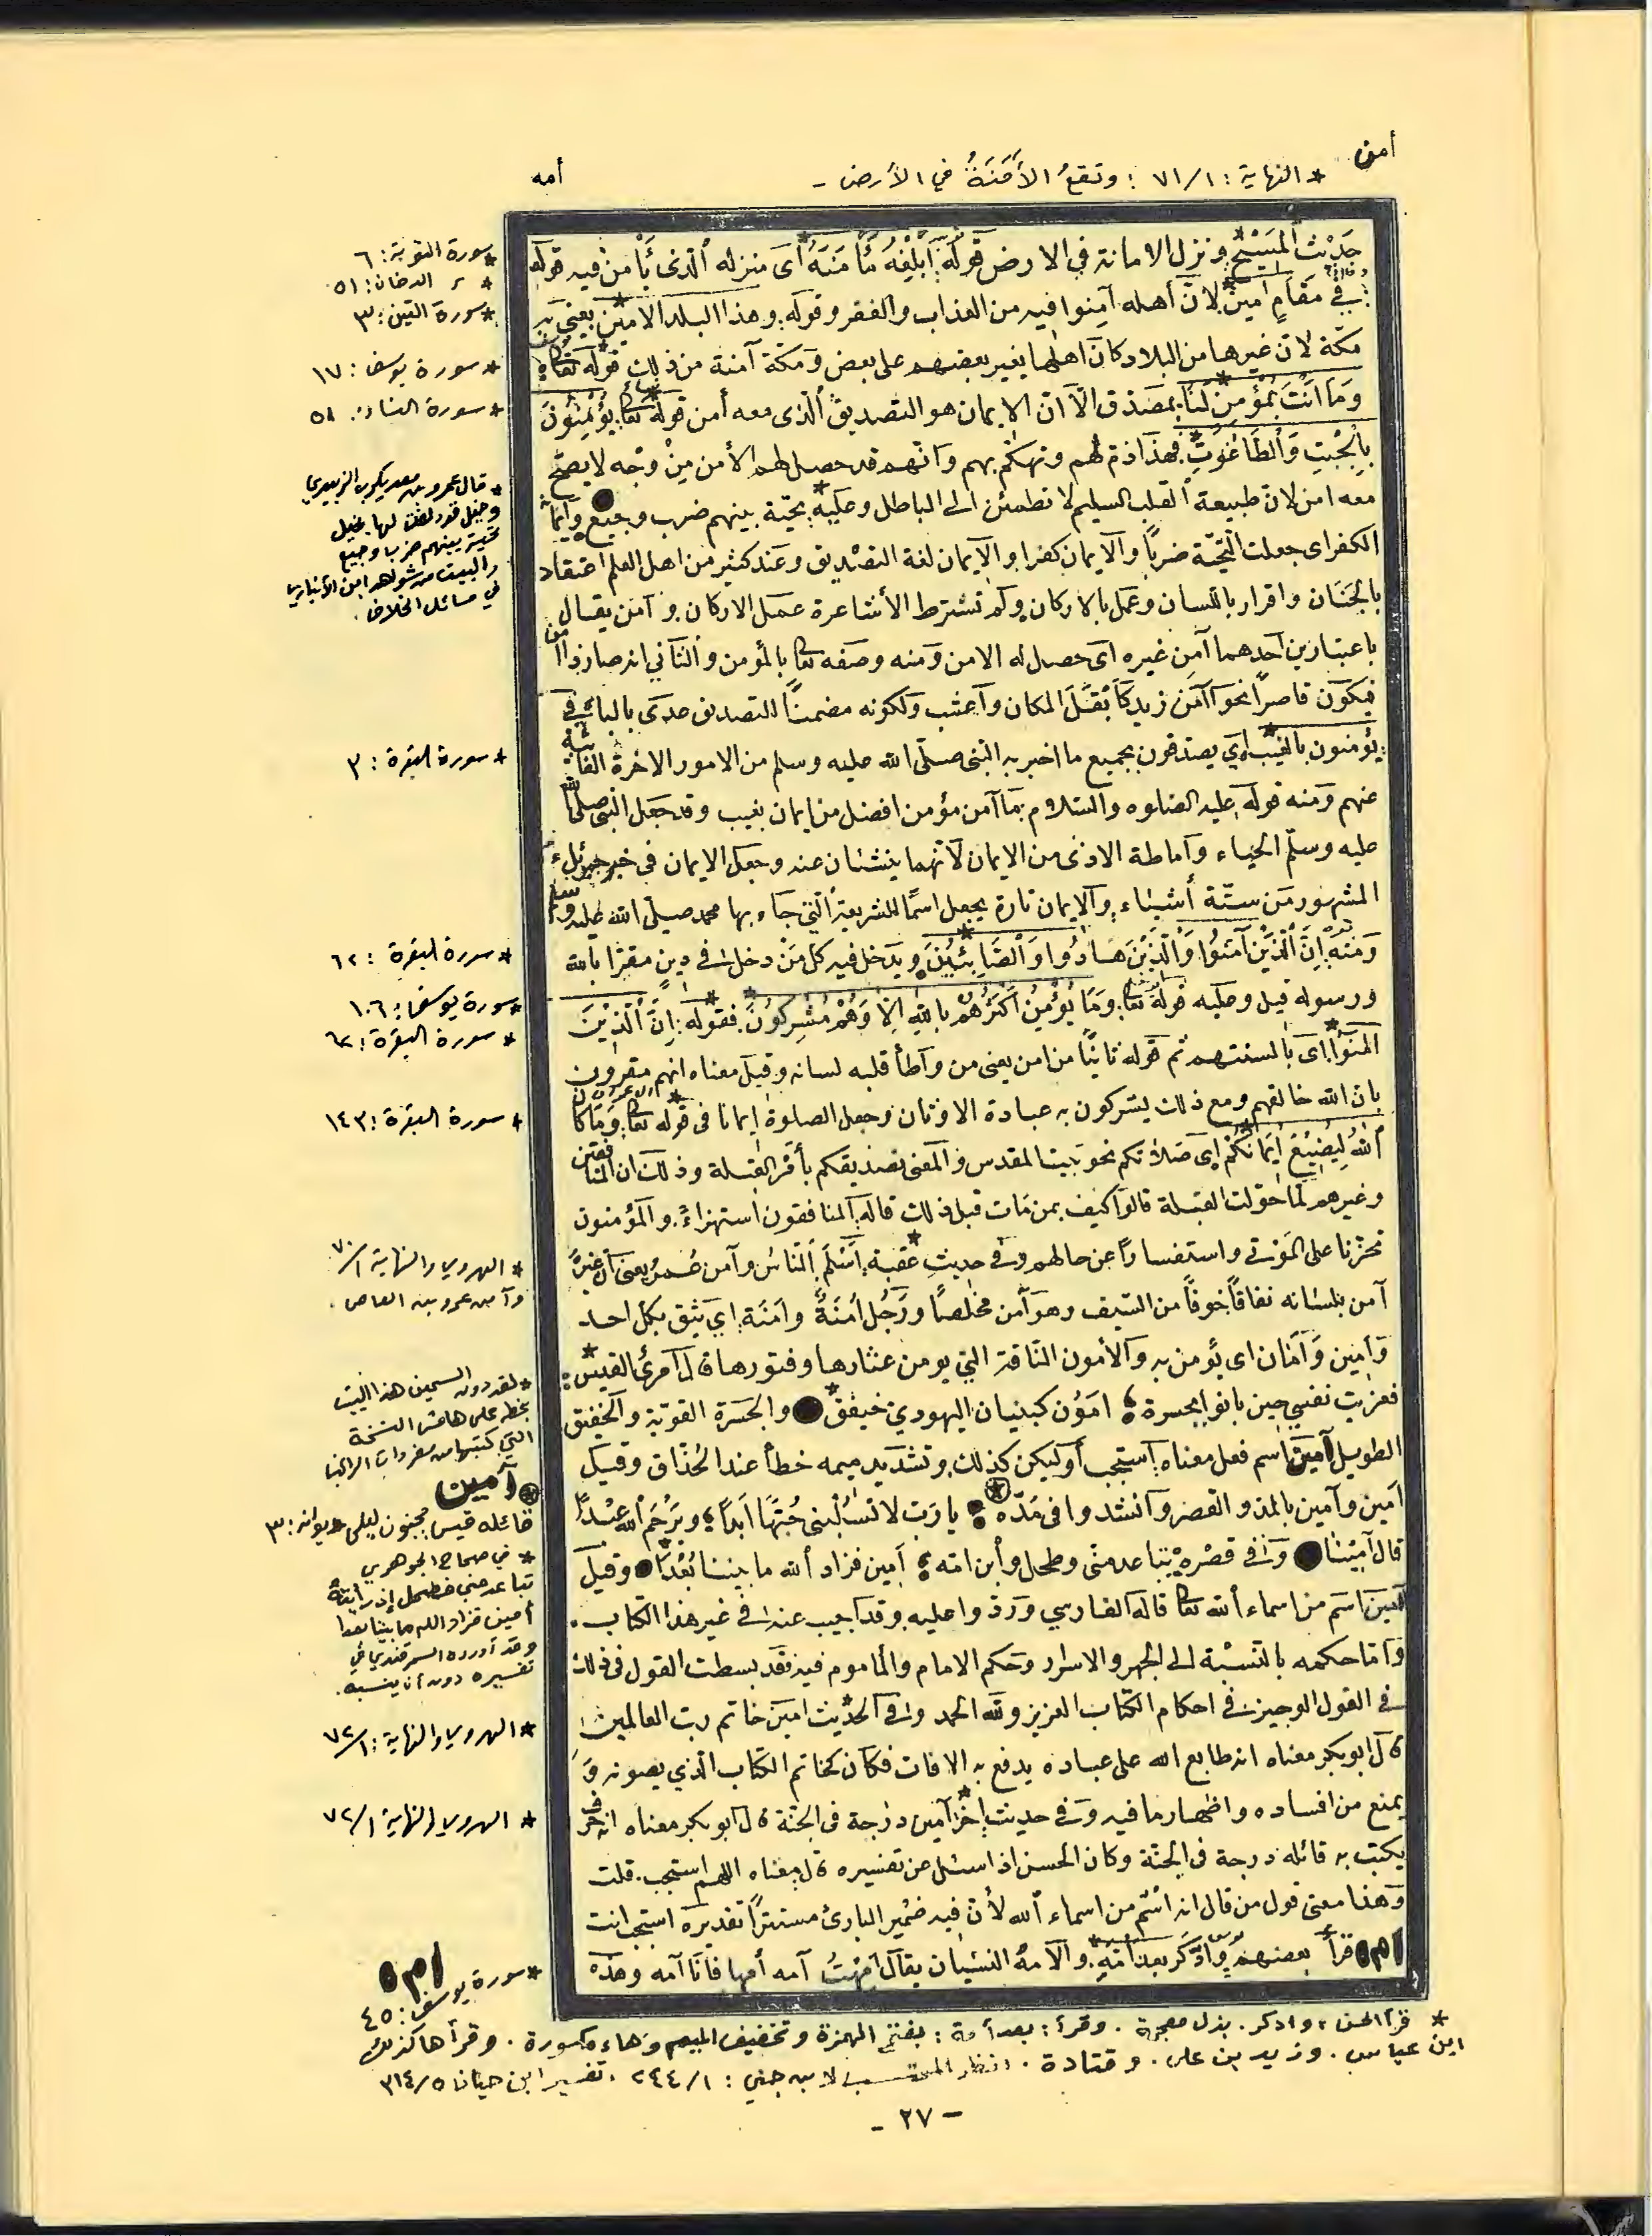 أمن
* النهاية: ٧١/١ : وتقعُ الأَمَنَةُ في الأرض -
أمه
حَدِيْث المَسِيْح ونزل الامانة في الارض قَولَه: أَبْلِغْهُ مَأْمَنَهُ أى منزله الّذى يَأْمن فيه قوله
في مَقَامٍ أمينٍ لانّ أهله آمِنوا فيه من العذاب والفقر وقوله: وهذا البلد الامين يعنى به
مكّة لانّ غيرها من البلاد كانَ اهلها يغير بعضهم على بعض ومَكّة آمنة من ذلك قوله تعالى
وَمَا اَنْتَ بِمُؤْمِنٍ لَّنَا بمصَدّق الّا انّ الايمان هو التصديق الّذى معه أمن قوله تعالى: يُؤْمِنُوْنَ
بِالْجِبْتِ وَالطَّاغُوتِ فهذَا ذمّ لهم وتهكّم بهم وانّهم قد حصل لهم الأمن مِنْ وَجْه لا يصحّ
مَعه امن لانّ طبيعة القلب السليم لا تطمئن الى الباطل وعليه: تحيّة بينهم ضرب وجيع
الكفر اى جعلت التّحيّة ضربًا والايمان كفرا والايمان لغة التصْديق وعَند كثير من اهل العلم اعتقاد
بالجَنَان واقرار باللسان وعمل بالاركان ولم تشترط الأشاعرة عمل الاركان وآمن يقال
باعتبارين اَحدهما آمن غيره اى حصل له الامن ومنه وصفه تعالى بالمؤمن والثّاني انه صار ذا أمن
فيكون قاصرًا نحو آمَن زيد كَأَبْقَلَ المكان وأعشب ولكونه مضمنًا للتصديق عدى بالباء في
: يؤمنون بالغيب اي يصدقون بجميع ما اخبر به النّبى صلّى الله عليه وسلم من الامور الاخرة الغائبة
عنهم ومنه قوله عليه الصلوه والسّلام ما آمن مؤمن افضل من ايمان بغيب وقد جعل النبى صلى الله
عليه وسلّم الحياء وَاماطة الاذى من الايمان لانّهما ينشئان عنه وجعل الايمان في خبر جبرئيل
المشهور من ستّة أشياء والايمان تارة يجعل اسمًا للشريعة الّتي جاء بها محمد صلى الله عليه وسلم
وَمنه: إِنَّ الَّذِيْنَ آمَنُوا وَالَّذِيْنَ هَادُوا وَالصَّابِئِيْنَ ويدخل فيه كل مَنْ دخل في دين مقرًا بالله
ورسوله قيل وعليه قوله تعالى: وَمَا يُؤْمِنُ اَكْثَرُهُمْ بِاللهِ اِلَّا وَهُمْ مُشْرِكُوْنَ فقوله: إِنَّ الَّذِيْنَ
اٰمَنُوا اى بالسنتهم ثم قوله ثانيًا من امن يعنى من واطأ قلبه لسانه وقيل معناه انهم مقرون
بان الله خالقهم ومع ذلك يشركون به عبادة الاوثان وجعل الصلوة ايمانا فى قوله تعالى: وَمَا كَانَ
اللهُ لِيُضِيْعَ اِيْمَانَكُمْ اى صَلاتكم نحو بيت المقدس والمعنى تصديقكم بأمر القبلة وذلك ان المنافقين
وغيرهم لمّا حوّلت القبلة قالوا كيف بمن مَات قبل ذلك قاله المنافقون استهزاءً والمؤمنون
تحزّنا على المَوْتى واستفسارًا عن حالهم وفى حديث عقبة: أَسْلَمَ النّاسُ وآمن عُمرو يعنى انّ غيره
آمن بلسانه نفاقًا خوفًا من السّيف وهو آمن مخلصًا ورَجُل أمَنَةٌ وامَنَة اي يثق بكل احد
وَامين وَأمَان اى يؤمن به والأمون النّاقة التي يومن عثارها وفتورها قال امرئ القيس:
فعزيت نفسي حين بانوا بجسرة امَوْن كبنيان اليهودي خيفق والجسْرة القويّة والخيفق
الطويل آمين اسم فعل معناه استجب أو ليكن كذلك وتشديد ميمه خطأ عند الحُذّاق وقيل
اَمين وآمين بالمد والقصر وَانشدوا فى مَدّه: يا رَب لا تسْلُبْنى حُبّهَا اَبدًا ويَرْحَم الله عبْدًا
قال آمِيْنا وفى قصْره: تباعد منّي فطحل وابن امّه اَمين فزاد الله ما بيننا بُعْدًا وقيل
آمين اسم من اسماء الله تعالى قاله الفارسي وَردّوا عليه وقد اجيب عنه في غير هذا الكتاب.
وَامّا حكمه بالنّسْبة الى الجهر والاسرار وحكم الامام والمأموم فيه فقد بسطت القول فى ذلك
في القول الوجيز في احكام الكتاب العزيز ولله الحمد وفي الحديث امين خاتم رب العالمين
قال ابو بكر معناه انه طابع الله على عباده يدفع به الافات فكان كخاتم الكتاب الّذي يصونه وَ
يمنع من افساده واظهار ما فيه وَفى حديث اخر آمين درجة فى الجنّة قال ابو بكر معناه انه حرف
يكتب به قائله درجة فى الجنّة وكان الحسن اذا سئل عن تفسيره قال معناه اللهم استجب. قلت
وَهذا معنى قول من قال انه اسْم من اسماء الله لأنّ فيه ضمير البارئ مستترًا تقديره استجب انت
ا م ه قرأ بعضهم وَادّكَر بعد أمَهٍ والامهُ النّسْيان يقال اَمِهْتُ آمه أمها فأنا آمه وهذه
*سورة التوبة: ٦
* ر الدخان: ٥١
*سورة التين: ٣
*سورة يوسف: ١٧
*سورة النساء: ٥١
* قال عمرو بن معد يكرب الزبيدي
وخيل قد دلفت لها بخيل
تحية بينهم ضرب وجيع
والبيت من شواهد ابن الأنباري
في مسائل الخلاف.
*سورة البقرة: ٣
*سورة البقرة: ٦٢
*سورة يوسف: ١٠٦
*سورة البقرة: ٦٢
*سورة البقرة: ١٤٣
* الهروي والنهاية ٧٠/١
وآمن عمرو بن العاص.
*لقد دون السمين هذا البيت
بخطه على هامش النسخة
التي كتبها من مفردات الراغب
آمين
* قائله قيس مجنون ليلى ديوانه: ٣
* في صحاح الجوهري
تباعد مني فطحل إذ رأيته
أمين فزاد الله ما بيننا بعدا
وقد أورده السمرقندي في
تفسيره دون أن ينسبه.
*الهروي والنهاية: ٧٢/١
* الهروي والنهاية ٧٢/١
ا م ه
*سورة يوسف: ٤٥
* قرأ الحسن: واذكر. بذال معجمة. وقرأ: بعد أمة: بفتح الهمزة وتخفيف الميم وهاء مكسورة. وقرأها كذلك
ابن عباس. وزيد بن علي. وقتادة. انظر المحتسب لابن جني: ٢٤٤/١. تفسير ابن حيان ٣١٤/٥
- ٢٧ -